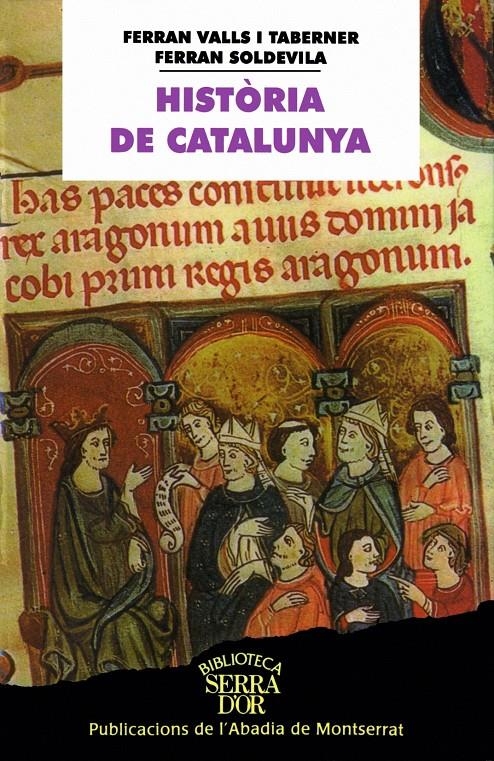 FERRAN VALLS I TABERNER
FERRAN SOLDEVILA
HISTÒRIA
DE CATALUNYA
has paces constituit
rex aragonum auus domini ja
cobi primi regis aragonum.
BIBLIOTECA
SERRA
D'OR
Publicacions de l'Abadia de Montserrat